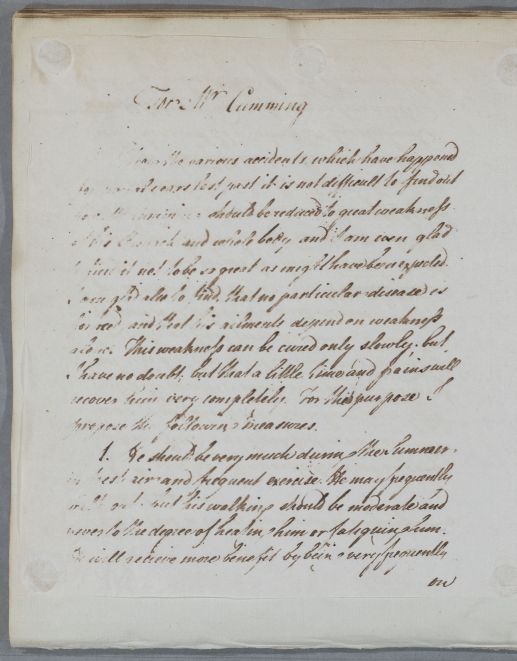 For Mr Cumming
From the various accidents which have happend
for several years last past it is not difficult to find out
how Mr Cumming should be reduced to great weakness
of his Stomach and whole body and I am even glad
to find it not to be so great as might have been expected.
I am glad also to find that no particular disease is
and that his ailments depend on weakness
alone. This weakness can be cured only slowly but
I have no doubt, but that a little time and pains will
recover him very completely. For this purpose I
propose the following measures.
1. He should be very much during the Summer,
in fresh air and frequent exercise. He may frequently
walk out but his walking should be moderate and
never to the degree of heating him or fatiguing him.
He will receive more benefit by being very frequently
on